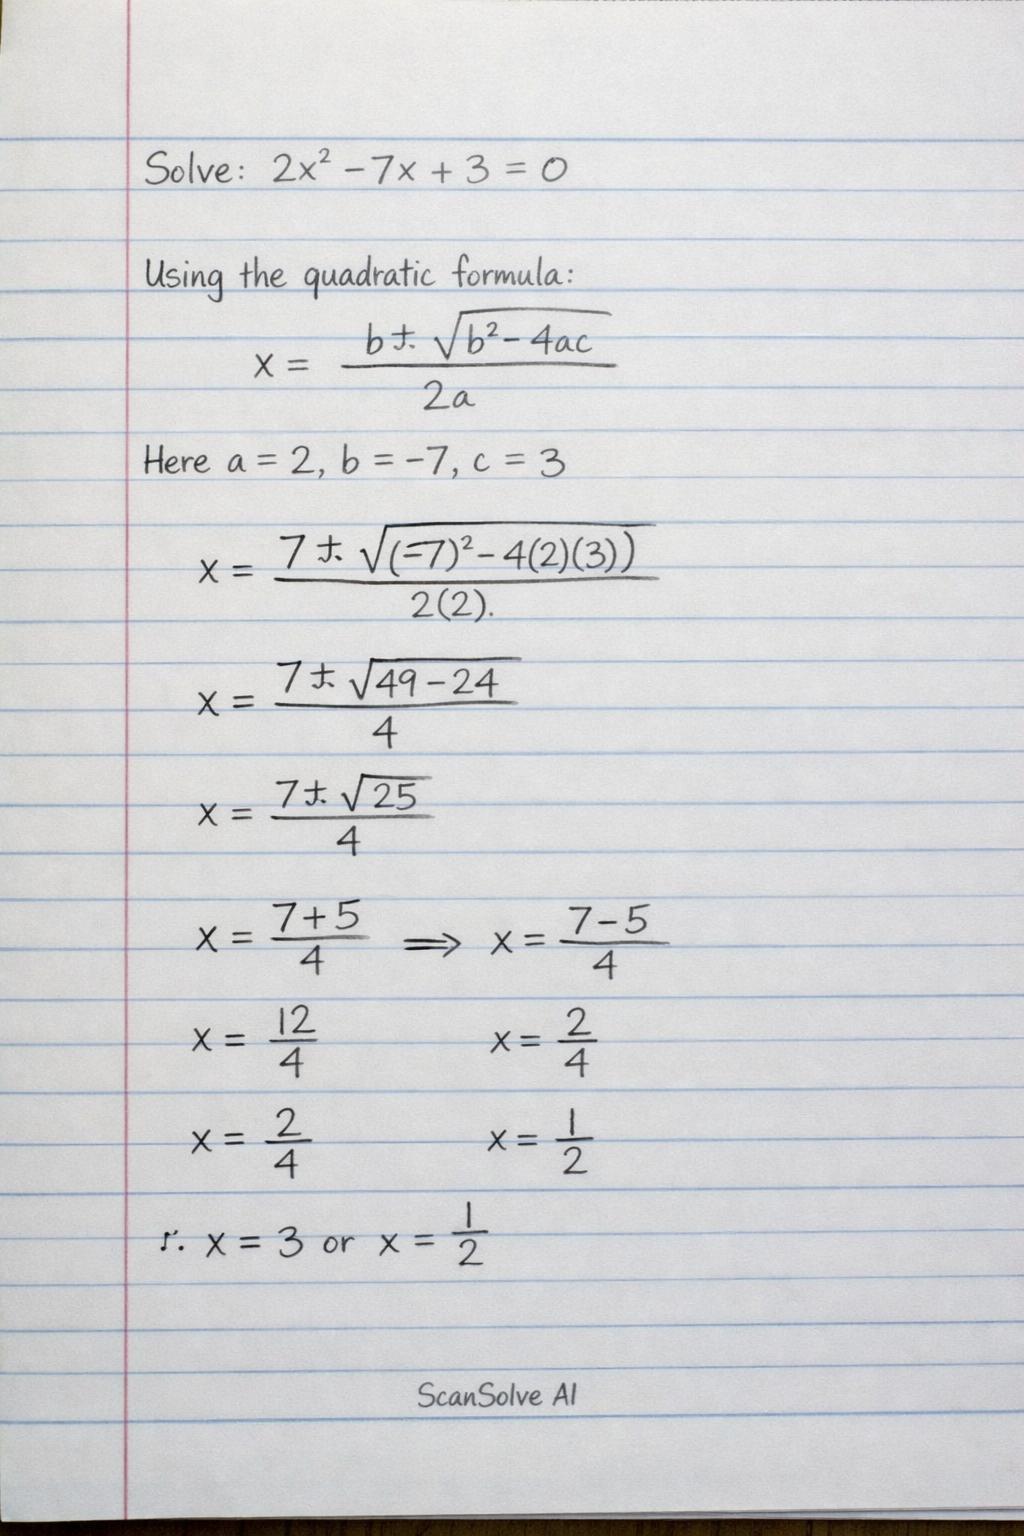 Solve: 2x² - 7x + 3 = 0
Using the quadratic formula:
x = (b ± √(b² - 4ac)) / 2a
Here a = 2, b = -7, c = 3
x = (7 ± √((-7)² - 4(2)(3))) / 2(2).
x = (7 ± √(49 - 24)) / 4
x = (7 ± √25) / 4
x = (7 + 5) / 4 ⟹ x = (7 - 5) / 4
x = 12/4 x = 2/4
x = 2/4 x = 1/2
∴ x = 3 or x = 1/2
ScanSolve AI